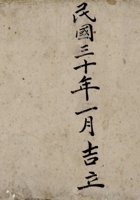 民國三十年一月吉立